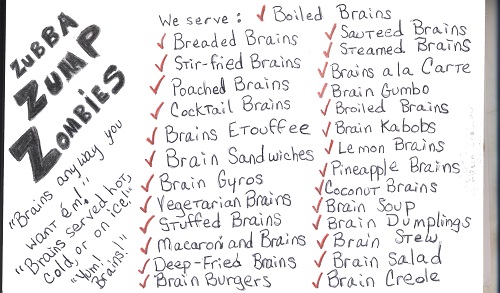 ZUBBA
ZUMP
ZOMBIES
"Brains anyway you
want ém!"
"Brains served hot,
cold, or on ice!"
"Yum!
Brains!"
We serve: ✓ Boiled Brains
✓ Breaded Brains
✓ Stir-fried Brains
✓ Poached Brains
✓ Cocktail Brains
✓ Brains Etouffee
✓ Brain Sandwiches
✓ Brain Gyros
✓ Vegetarian Brains
✓ Stuffed Brains
✓ Macaroni and Brains
✓ Deep-Fried Brains
✓ Brain Burgers
✓ Sauteed Brains
✓ Steamed Brains
✓ Brains a la Carte
✓ Brain Gumbo
✓ Broiled Brains
✓ Brain Kabobs
✓ Lemon Brains
✓ Pineapple Brains
✓ Coconut Brains
✓ Brain Soup
✓ Brain Dumplings
✓ Brain Stew
✓ Brain Salad
✓ Brain Creole